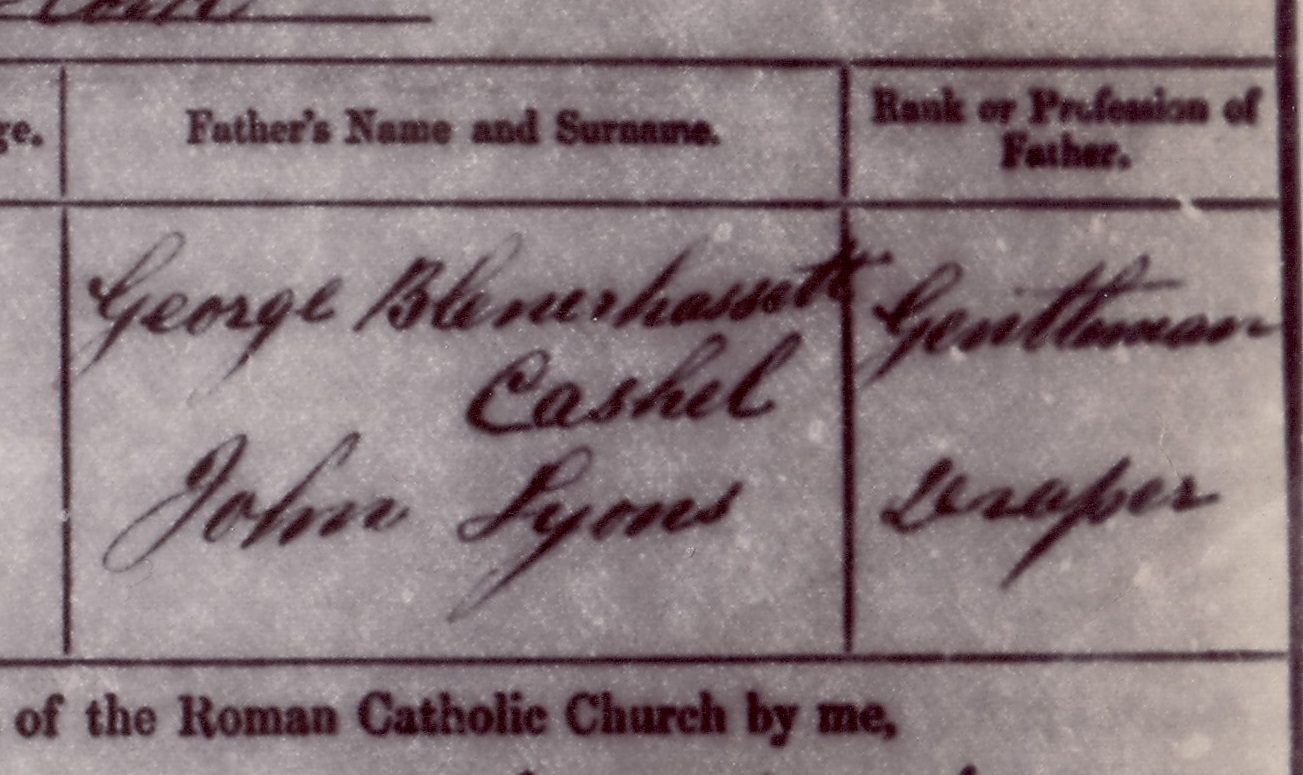 ge. Father's Name and Surname. Rank or Profession of
Father.
George Blenerhassett Gentleman
Cashel
John Lyons Draper
of the Roman Catholic Church by me,